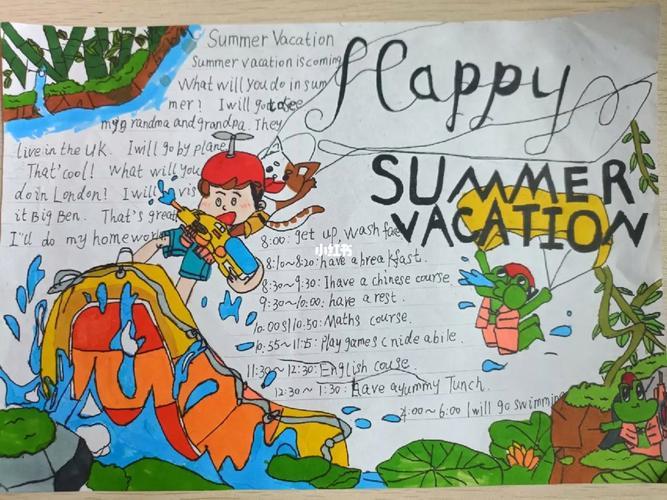 Summer Vacation
Summer vacation is coming
What will you do in sum
mer? I will go to see
my grandma and grandpa. They
live in the UK. I will go by plane
That' cool! What will you
do in London? I will vis
it Big Ben. That's great
I''ll do my homework
Happy
SUMMER
VACATION
8:00: get up wash face
8:10~8:20: have a breakfast.
8:30~9:30: I have a chinese course
9:30~10:00: have a rest.
10:00~10:50: Maths course.
10:55~11:25: Play games
11:30~12:30: English couse
12:30~1:30: Have a yummy Tunch.
4:00~6:00 I will go swimming
小红书